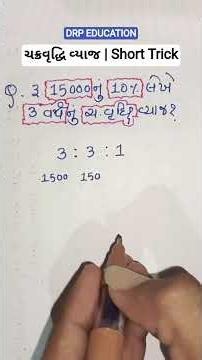 DRP EDUCATION
ચક્રવૃદ્ધિ વ્યાજ | Short Trick
Q. રૂ 15000નું 10% લેખે
3 વર્ષનું ચ.વૃદ્ધિ વ્યાજ?
3 : 3 : 1
1500 150